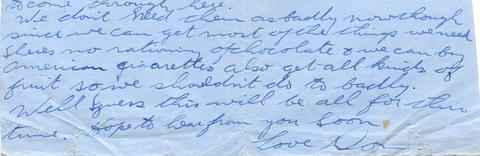 to come through here.
We don't need them as badly now though
since we can get most of the things we need
theres no rationing of chocolate & we can buy
American cigarettes also get all kinds of
fruit so we shouldn't do to badly.
Well I guess this will be all for this
time. Hope to hear from you soon
Love Don